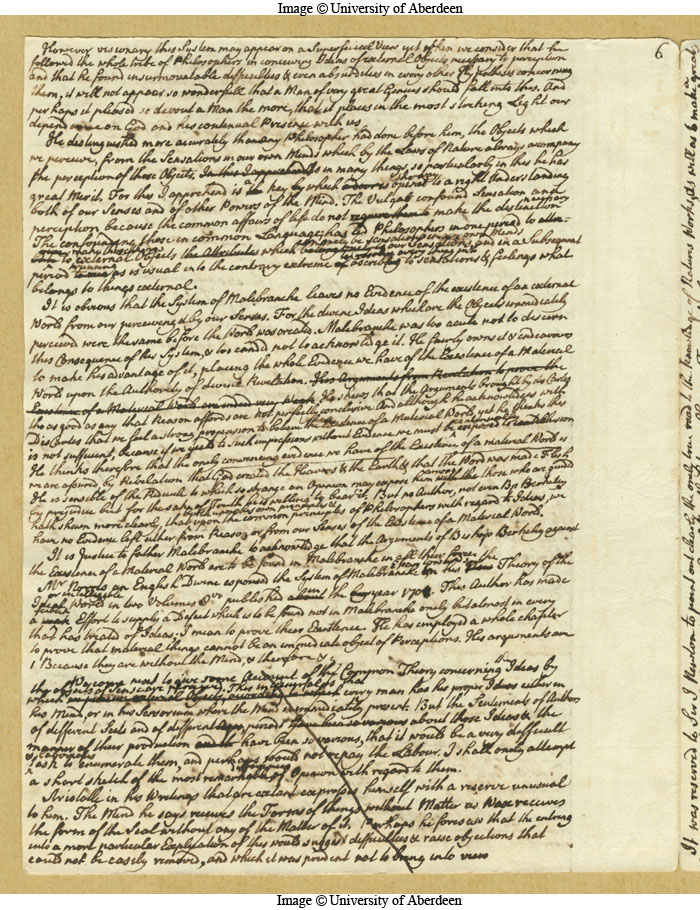 Image © University of Aberdeen
6
However visionary this System may appear on a Superficial View yet when we consider that he
followed the whole tribe of Philosophers in conceiving Ideas of external Objects necessary to perception
and that he found insurmountable difficulties & even absurdities in every other Hypothesis concerning
them, it will not appear so wonderfull that a Man of very great Genius should fall into this. And
perhaps it pleased so devout a Man the more, that it places in the most striking Light our
dependance on God and his continual Presence with us
He distinguished more accurately than any Philosopher had done before him, the Objects which
we perceive, from the Sensations in our own Minds which by the Laws of Nature always accompany
the perception of those Objects. In this in many things, so particularly in this he has
great Merit. For this I apprehend is a key by which a right understanding
both of our Senses and of other Powers of the Mind. The Vulgar confound Sensation and
perception because the common affairs of life do not make the distinction necessary
The confounding these in common Language has led Philosophers in one period to
external Objects and in a Subsequent
period as is usual into the contrary extreme of ascribing to sensations & feelings what
belongs to things external.
It is obvious that the System of Malebranche leaves no Evidence of the existence of an external
World from our perceiving it by our Senses. For the divine Ideas which are the Objects immediately
perceived were the same before the World was created. Malebranche was too acute not to discern
this Consequence of his System, & too candid not to acknowledge it. He fairly owns it & endeavours
to make his advantage of it, placing the whole Evidence we have of the Existence of a Material
World upon the Authority of divine Revelation. His Arguments from Revelation to prove the
Existence of a Material World are indeed very Weak. He shews that the Arguments brought by Des Cartes
tho as good as any that Reason affords are not perfectly conclusive. And although he acknowledges with
Des Cartes that we feel a strong propension to believe the Existence of a Material World, yet he thinks this
is not sufficient, because if we yield to Such impressions without Evidence we must be exposed to
He thinks therefore that the onely convincing evidence we have of the Existence of a material World is
we are assured by Revelation that God created the Heavens & the Earth & that the Word was made Flesh
He is sensible of the Ridicule to which so strange an Opinion may expose him with those who are guided
by prejudice but for the sake of Truth he is willing to bear it. But no Author, not even Bp Berkeley
hath shewn more clearly, that upon the common principles of Philosophers with regard to Ideas, we
have no Evidence left either from Reason or from our Senses of the Existence of a Material World.
It is Justice to father Malebranche to acknowledge that the Arguments of Bishop Berkeley against
the Existence of a Material World are to be found in Malebranche in all their force
Mr Norris an English Divine espoused the System of Malebranche in his Theory of the
Ideal World in two Volumes 8vo published the year 1701. This Author has made
a Effort to supply a Defect which is to be found not in Malebranche onely but almost in every
that has treated of Ideas: I mean to prove their Existence. He has employed a whole chapter
to prove that material things cannot be an immediate object of Perceptions. His arguments are
1 Because they are without the Mind, & therefore &
We come next to give some Account of the Common Theory concerning Ideas by
which every man has his proper Ideas either in
his Mind, or in his Sensorium where the Mind is immediately present. But the Sentiments of Authors
of different Sects and of different periods about those Ideas & the
manner of their production have been so various, that it would be a very difficult
task to enumerate them, and perhaps would not repay the Labour. I shall onely attempt
a short sketch of the most remarkable of Opinion with regard to them.
Aristotle in his Writings that are extant expresses himself with a reserve unusual
to him. The Mind he says receives the Forms of things without Matter as Wax receives
the form of the Seal without any of the Matter of it. Perhaps he foresaw that the entring
into a more particular Explication of this would suggest difficulties & raise objections that
could not be easily removed, and which it was prudent not to bring into view
It was reserved to Sir I Newton to point out clearly the only true road to the knowledge of Nature Works
Image © University of Aberdeen